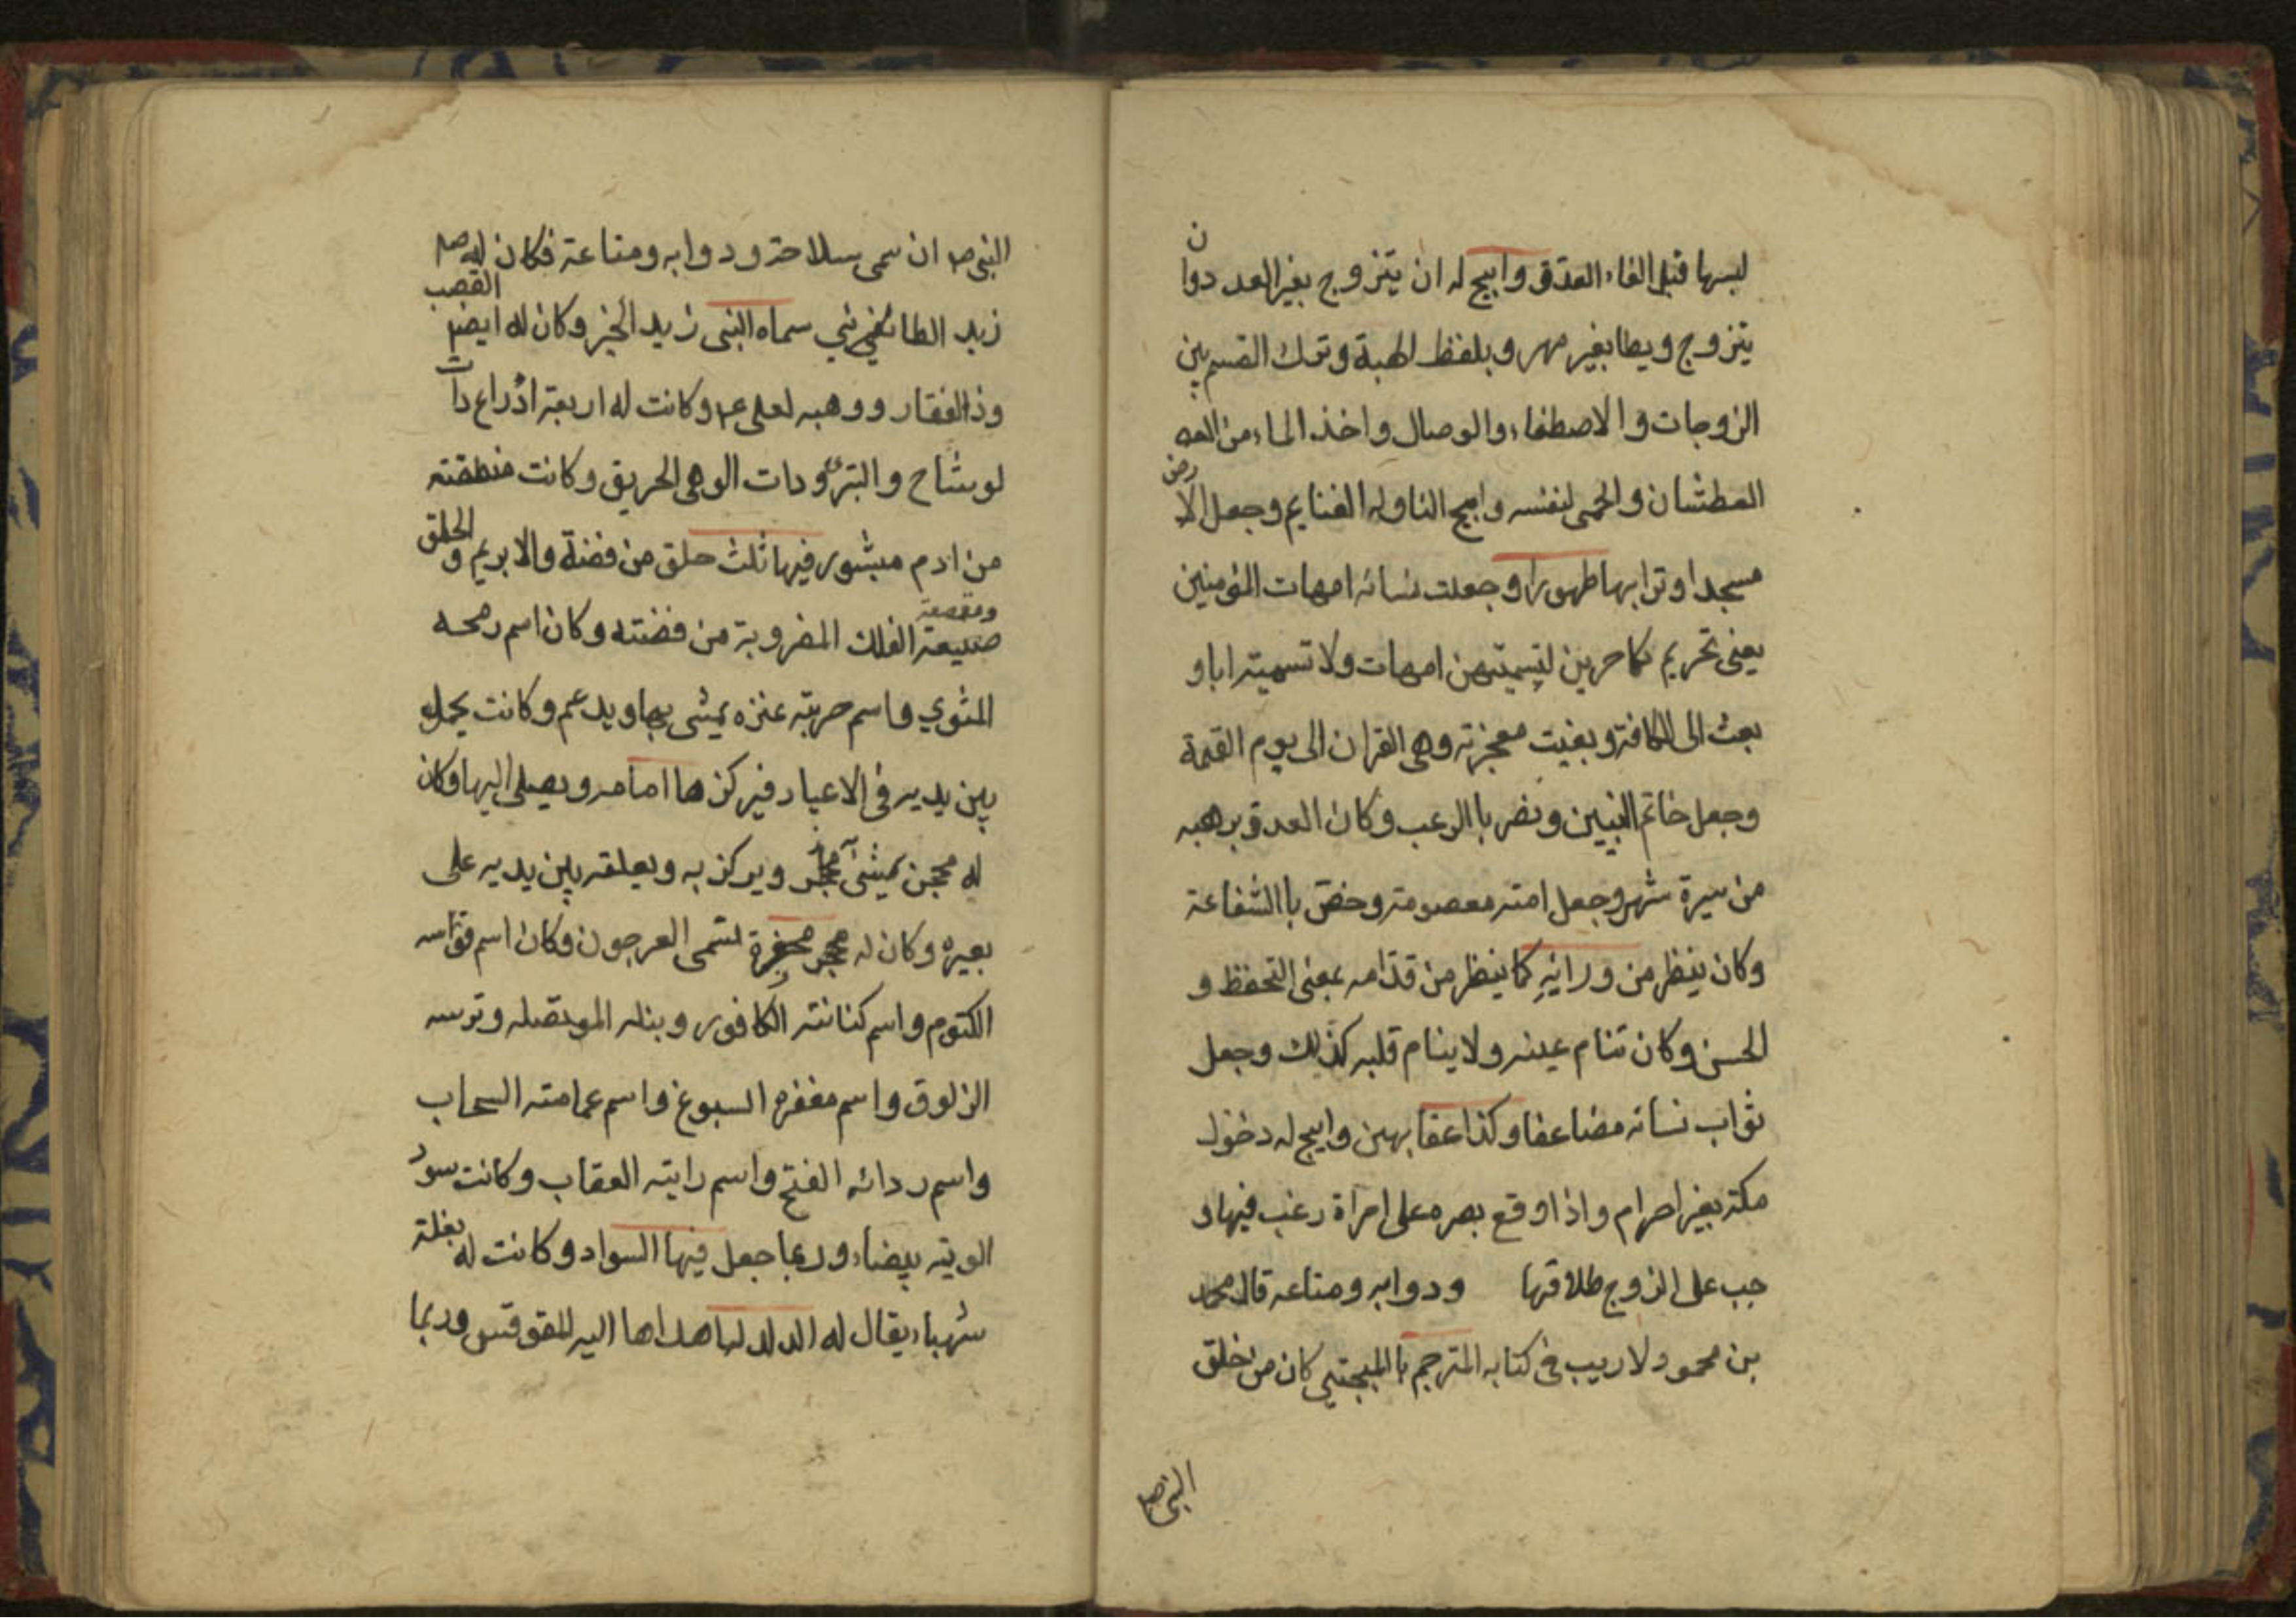 لبسها قبل القاء العدو وابيح له ان يتزوج بغير العدد وان
يتزوج ويطا بغير مهر وبلفظ الهبة وترك القسم بين
الزوجات والاصطفاء والوصال واخذ الماء من
العطشان والحمى لنفسه وابيح لنا وله الغنايم وجعل الارض
مسجدا وترابها طهورا وجعلت نسائه امهات المؤمنين
يعنى تحريم نكاحهن لتسميتهن امهات ولا تسميته ابا و
بعث الى الكافة وبقيت معجزته وهى القران الى يوم القيمة
وجعل خاتم النبيين ونصر با الرعب وكان العدو يرهبه
من سيرة شهر وجعل امته معصومة وخص با الشفاعة
وكان ينظر من ورائه كما ينظر من قدامه بمعنى التحفظ و
الحسن وكان تنام عينه ولا ينام قلبه كذلك وجعل
ثواب نسائه مضاعفا وكذا عقابهن وابيح له دخول
مكة بغير احرام واذا وقع بصره على امراة رغب فيها و
جب على الزوج طلاقها ودوابه ومتاعه قال محمد
بن محمود لا ريب فى كتابه المترجم با المجتبى كان من خلق
النبى ص
النبى ص ان سمى سلاحة ودوابه ومتاعة فكان له ص
زيد الطائفي سماه النبى زيد الخير وكان له ايض القصب
وذالفقار ووهبه لعلى ع وكانت له اربعة ادراع ذات
لوشاح والبتر وذات الوهى الحريق وكانت منطقته
من ادم مبشور فيها ثلث حلق من فضة والابريم والحلق
صبيعة الفلك المضروبة من فضته وكان اسم رمحه
المثوي واسم حربته عنزه يمشى بها ويدعم وكانت يحمل
بين يديه فى الاعياد فيركزها امامه ويصلى اليها وكان
له محجن يمشى ويركز به ويعلقه بين يديه على
بعيره وكان له تسمى العرجون وكان اسم قواسه
الكتوم واسم كنانته الكافور ونبله الموتصله وترسه
الزلوق واسم مغفره السبوغ واسم عمامته السحاب
واسم ردائه الفتح واسم رايته العقاب وكانت سود
الويته بيضاء وربما جعل فيها السواد وكانت له بغلة
شهباء يقال له الدلدل اهداها اليه المقوقس وربما